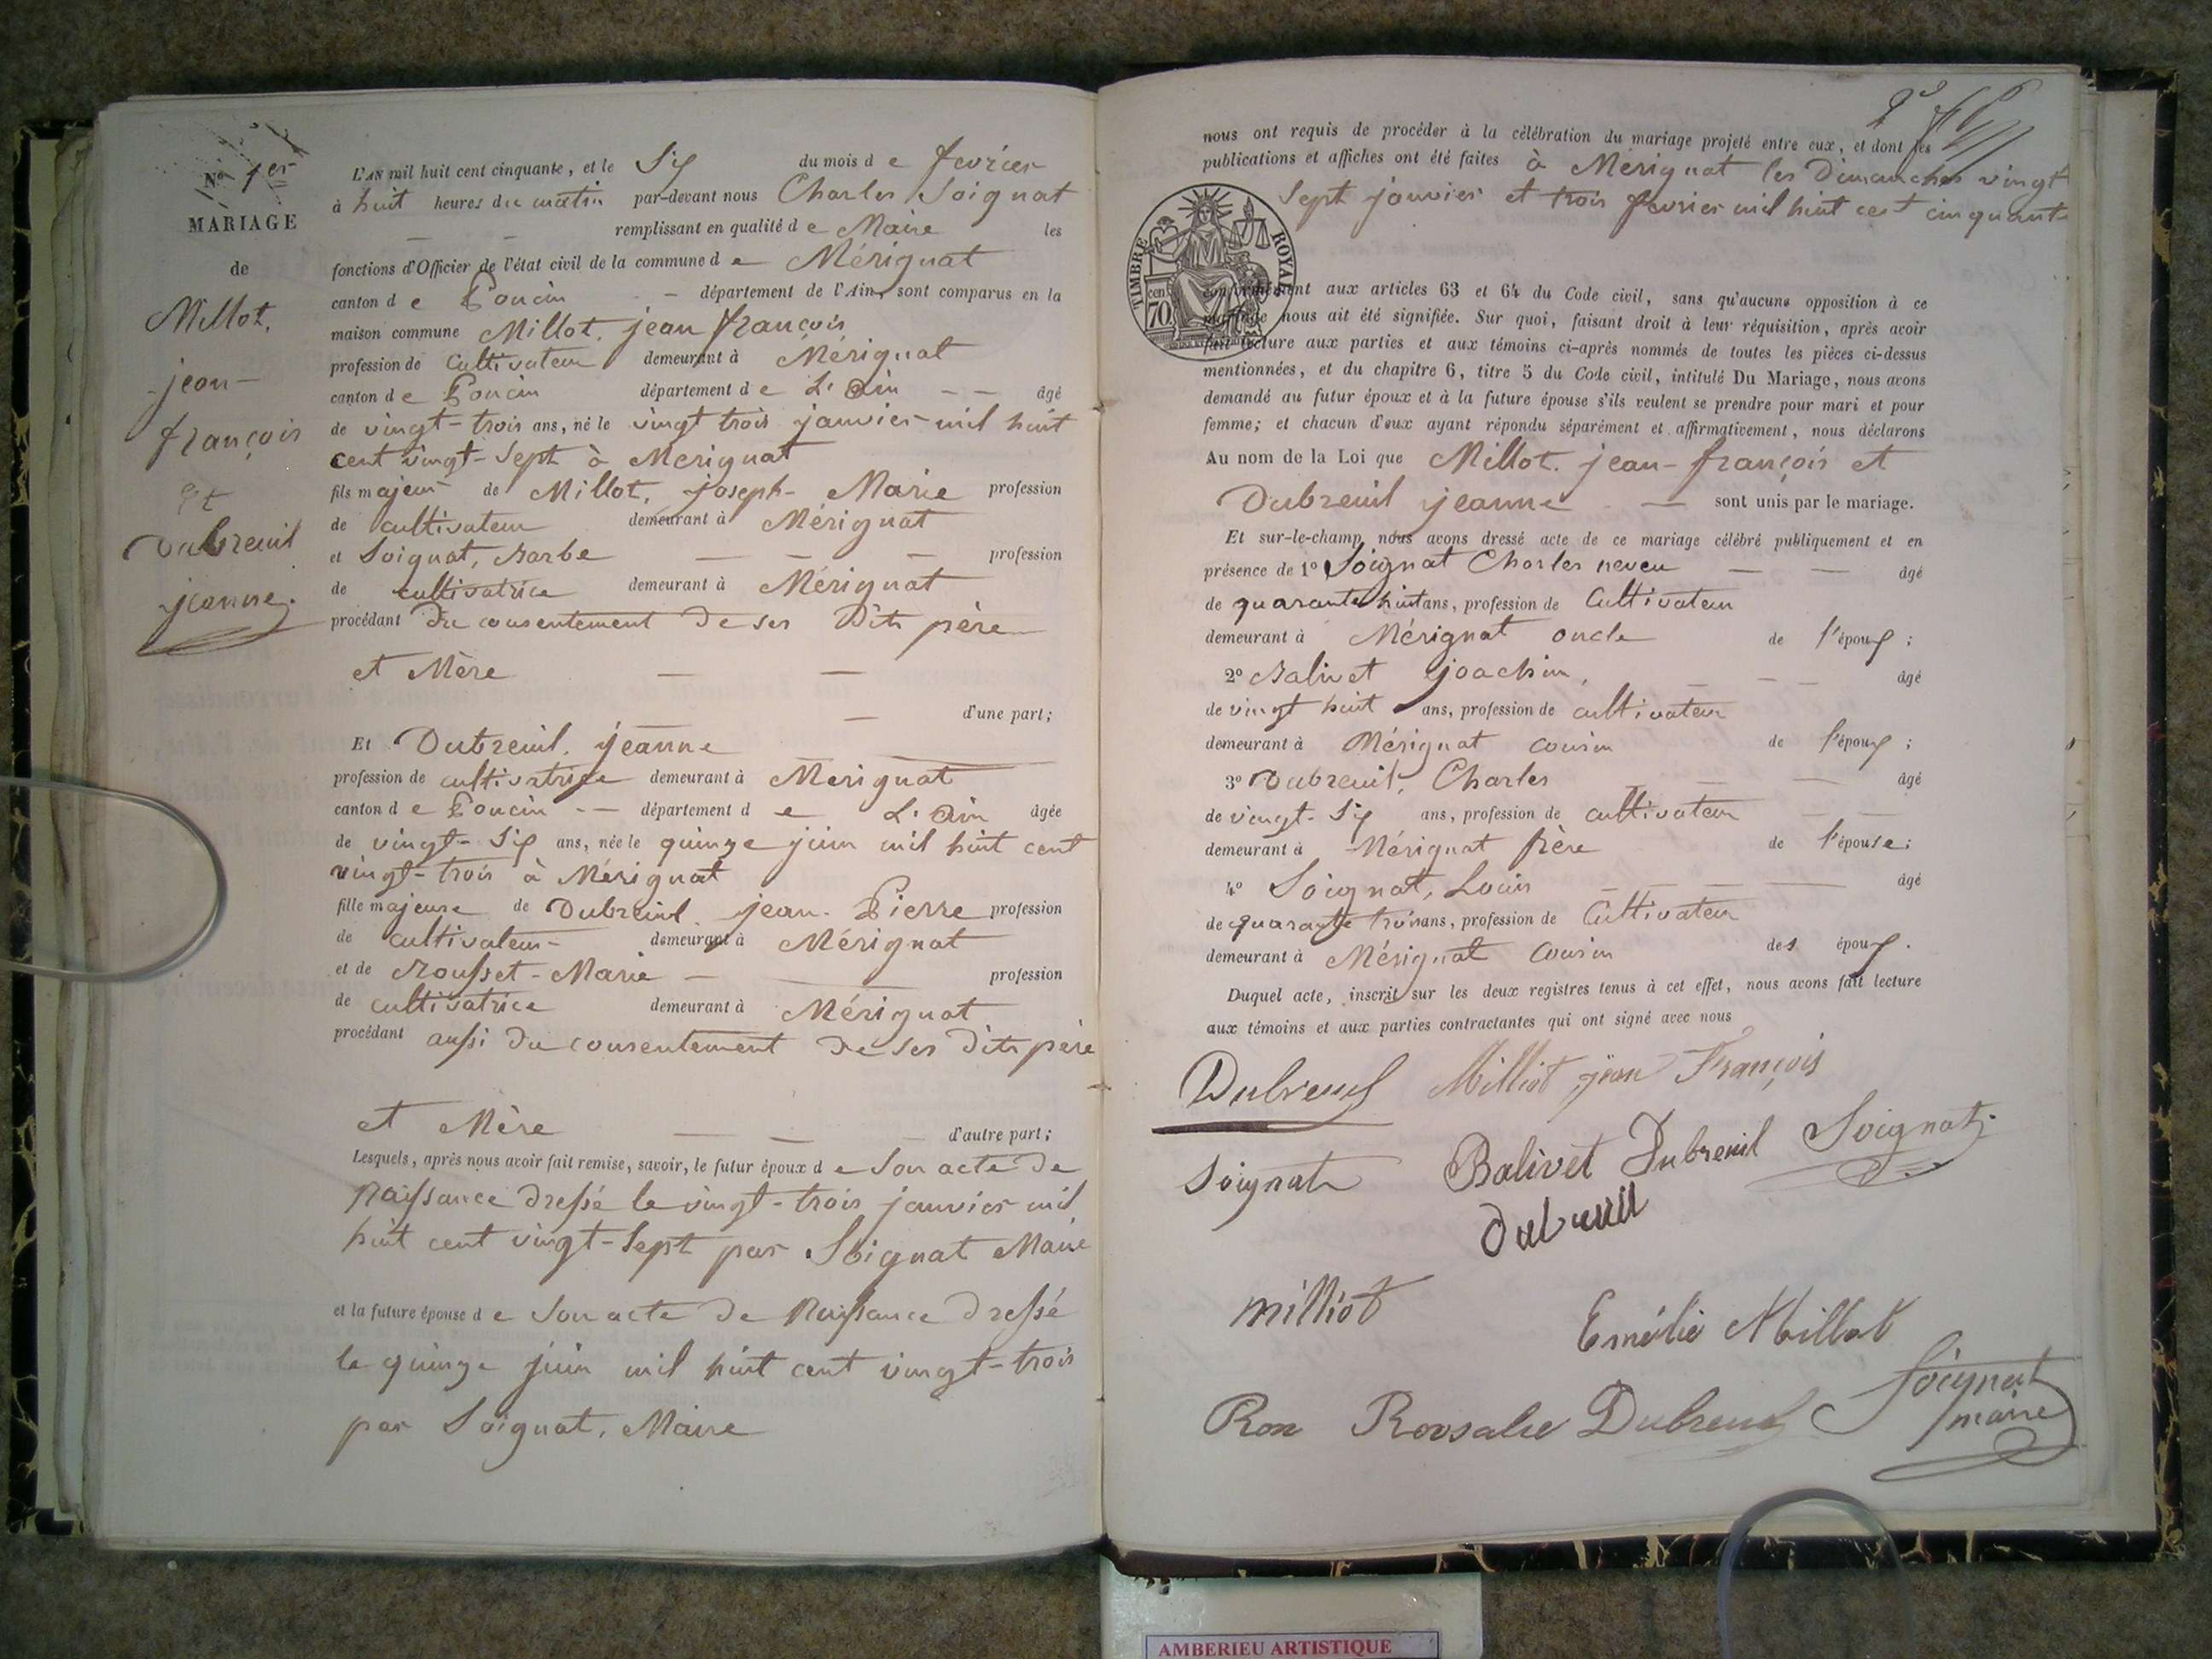 N° 1er
MARIAGE
de
Millot,
jean-
françois
Et
Dubreuil
jeanne.
L'AN mil huit cent cinquante, et le Six du mois de fevrier
à huit heures du matin par-devant nous Charles Soignat
remplissant en qualité de Maire les
fonctions d'Officier de l'état civil de la commune de Mérignat
canton de Poncin département de l'Ain, sont comparus en la
maison commune Millot, jean françois
profession de Cultivateur demeurant à Mérignat
canton de Poncin département de L'Ain âgé
de vingt-trois ans, né le vingt trois janvier mil huit
cent vingt-Sept à Merignat
fils majeur de Millot, joseph-Marie profession
de cultivateur demeurant à Mérignat
et Soignat, Barbe profession
de cultivatrice demeurant à Mérignat
procédant Du consentement De ses Dits père
et Mère
d'une part;
Et Dubreuil, jeanne
profession de cultivatrice demeurant à Merignat
canton de Poncin département de L'Ain âgée
de vingt-Six ans, née le quinze juin mil huit cent
vingt-trois à Mérignat
fille majeure de Dubreuil, jean-Pierre profession
de cultivateur- demeurant à Mérignat
et de Rousset-Marie profession
de cultivatrice demeurant à Mérignat
procédant aussi du consentement de ses dits père
et Mère d'autre part;
Lesquels, après nous avoir fait remise, savoir, le futur époux de Son acte De
Naissance dressé le vingt-trois janvier mil
huit cent vingt-Sept par Soignat Maire
et la future épouse de Son acte De Naissance Dressé
le quinze juin mil huit cent vingt-trois
par Soignat, Maire
nous ont requis de procéder à la célébration du mariage projeté entre eux, et dont les
publications et affiches ont été faites à Mérignat les Dimanches vingt
Sept janvier et trois fevrier mil huit cent cinquante
TIMBRE ROYAL
70 cen
conformément aux articles 63 et 64 du Code civil, sans qu'aucune opposition à ce
mariage nous ait été signifiée. Sur quoi, faisant droit à leur réquisition, après avoir
fait lecture aux parties et aux témoins ci-après nommés de toutes les pièces ci-dessus
mentionnées, et du chapitre 6, titre 5 du Code civil, intitulé Du Mariage, nous avons
demandé au futur époux et à la future épouse s'ils veulent se prendre pour mari et pour
femme; et chacun d'eux ayant répondu séparément et affirmativement, nous déclarons
Au nom de la Loi que Millot, jean-françois et
Dubreuil jeanne sont unis par le mariage.
Et sur-le-champ nous avons dressé acte de ce mariage célébré publiquement et en
présence de 1° Soignat Charles neveu âgé
de quarante huit ans, profession de Cultivateur
demeurant à Mérignat oncle de l'époux;
2° Balivet joachim, âgé
de vingt huit ans, profession de cultivateur
demeurant à Mérignat cousin de l'époux;
3° Dubreuil, Charles âgé
de vingt-Six ans, profession de cultivateur
demeurant à Mérignat frère de l'épouse;
4° Soignat, Louis âgé
de quarante trois ans, profession de Cultivateur
demeurant à Mérignat cousin des époux.
Duquel acte, inscrit sur les deux registres tenus à cet effet, nous avons fait lecture
aux témoins et aux parties contractantes qui ont signé avec nous
Dubreuil Milliot jean François
Soignat Balivet Dubreuil Soignat
Dubreuil
Milliot
Emélie Millot
Ron Roosalie Dubreuil Soignat
maire
AMBERIEU ARTISTIQUE